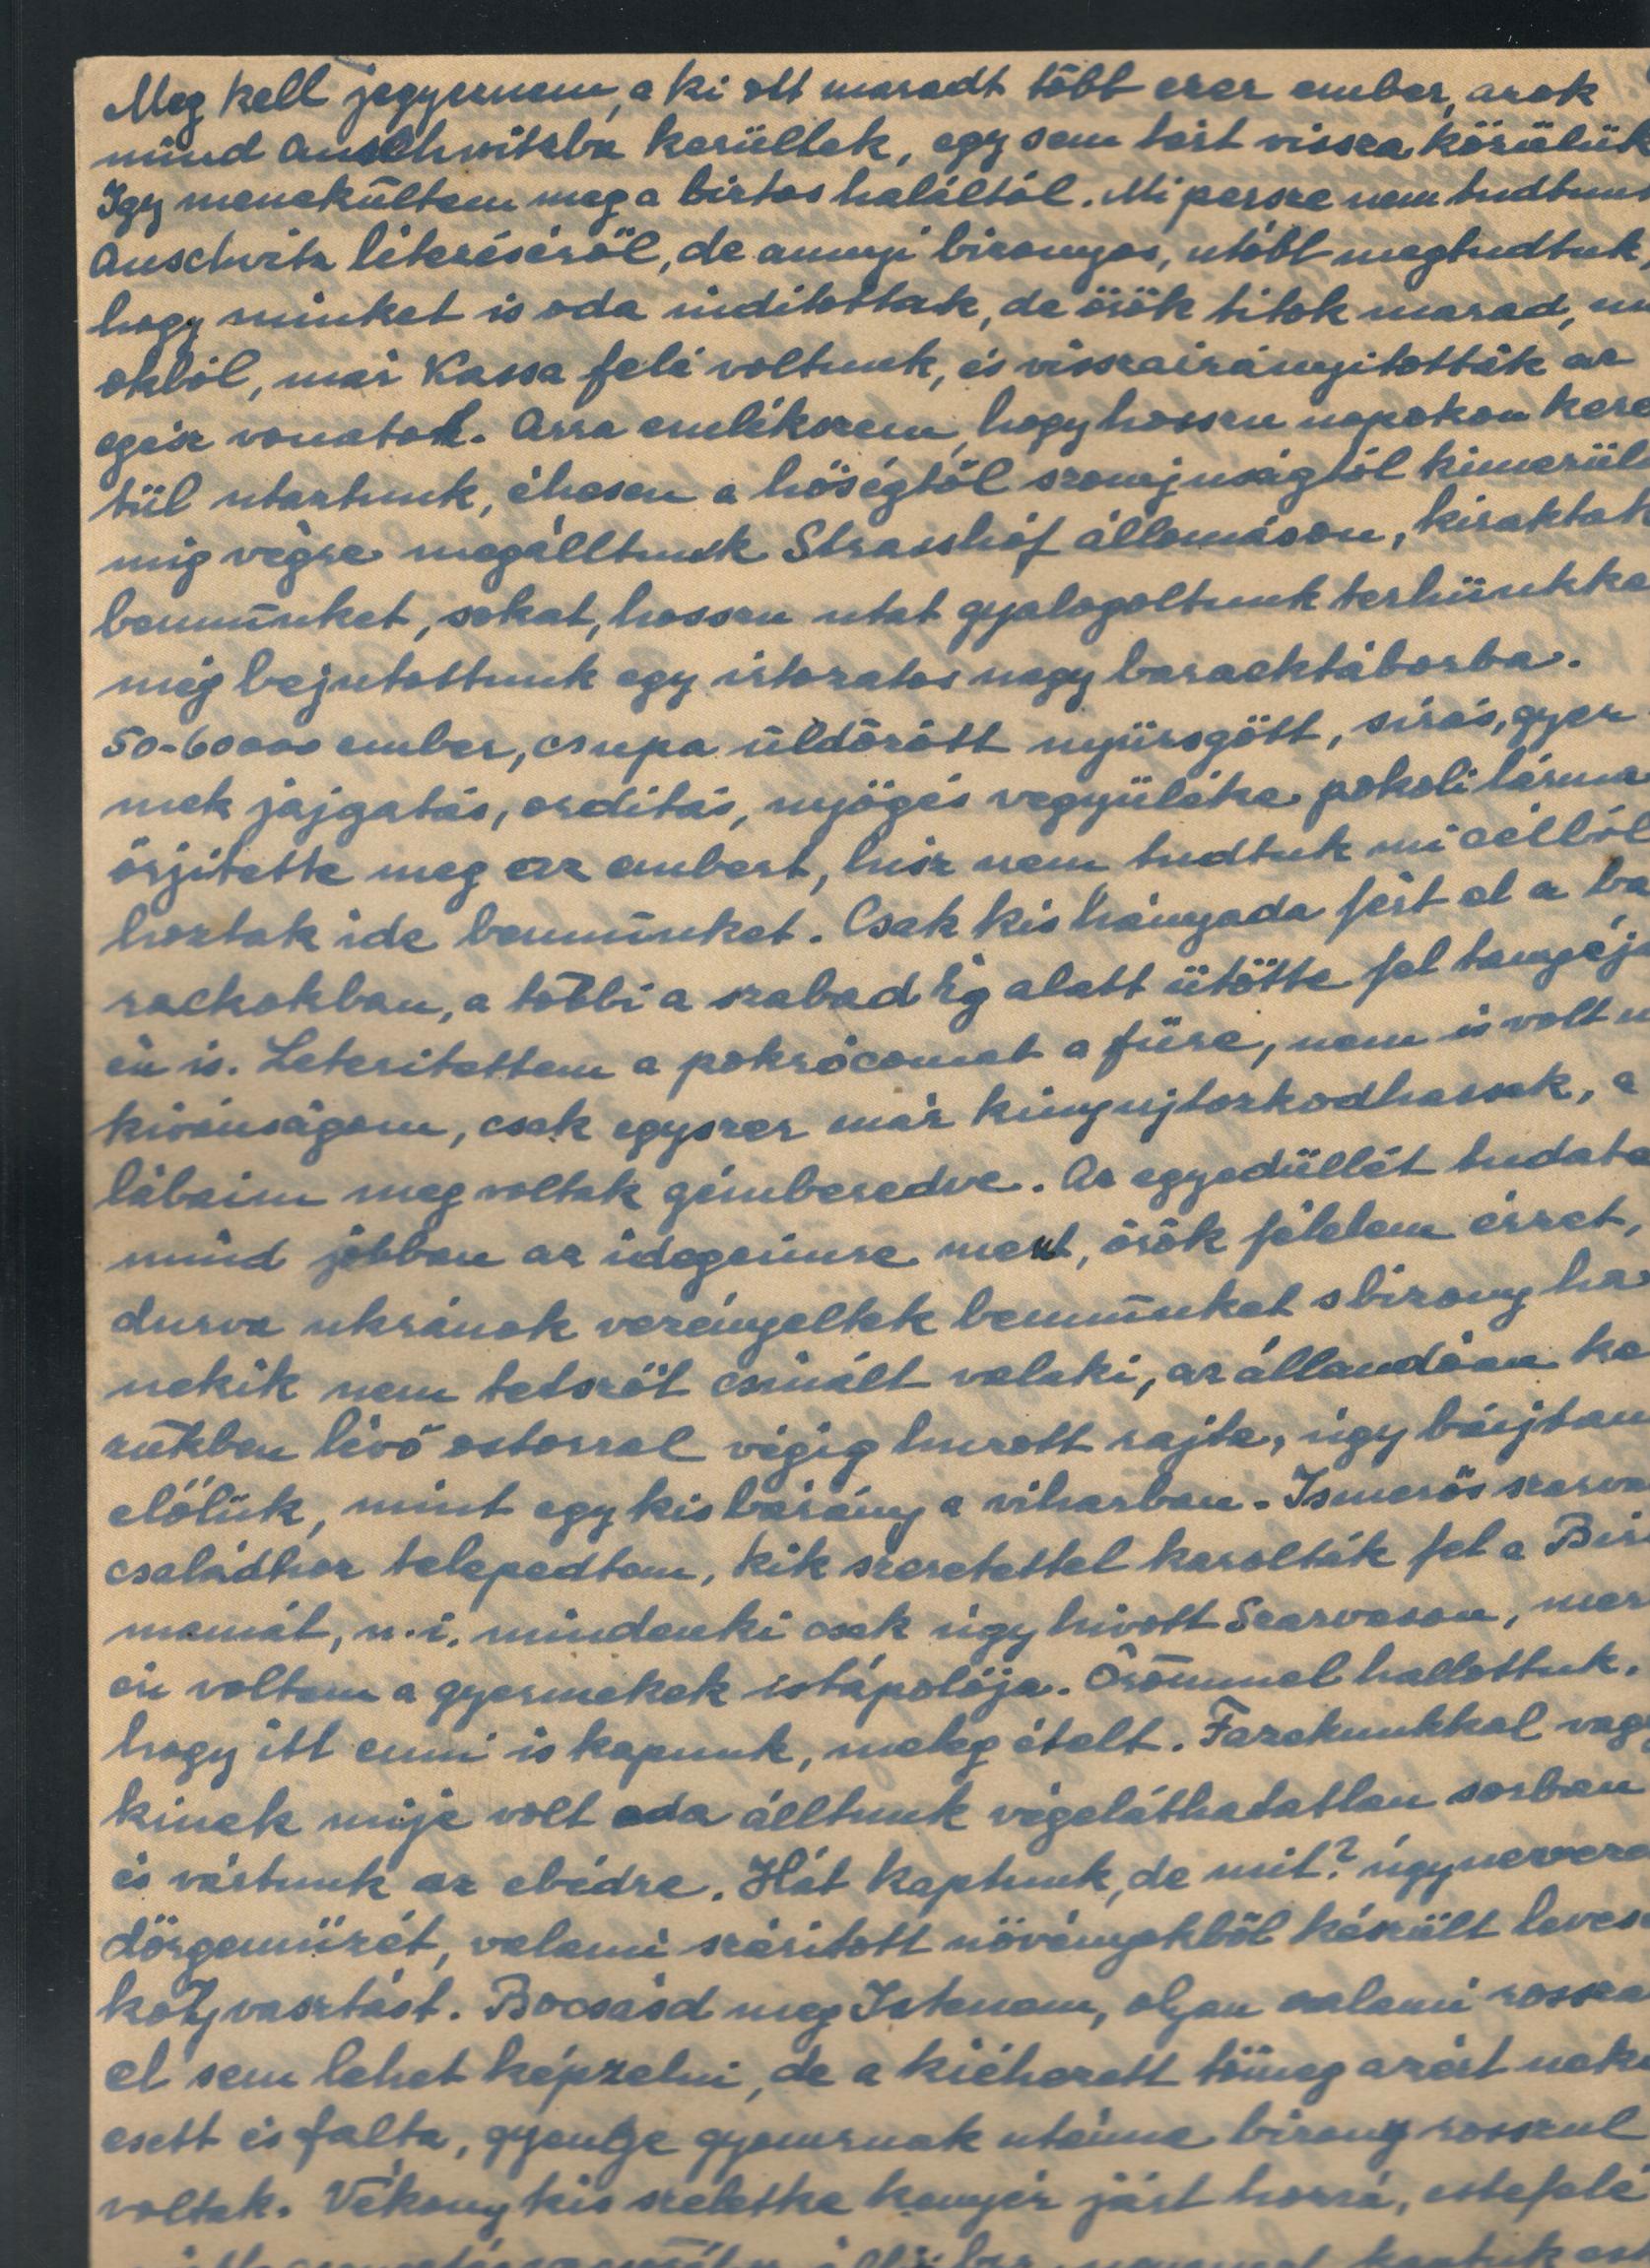 Meg kell jegyeznem, a ki ott maradt több ezer ember, azok
mind Auschwitzba kerültek, egy sem tért vissza közülük
Igy menekültem meg a biztos haláltól. Mi persze nem tudtunk
Auschvitz létezéséről, de annyi bizonyos, utóbb megtudtuk,
hogy minket is oda inditottak, de örök titok marad, m
okból, már Kassa felé voltunk, és visszairányitották az
egész vonatot. Arra emlékszem, hogy hosszu napokon kere
tül utaztunk, éhesen a hőségtől szomjuságtól kimerül
mig végre megálltunk Strasshóf állomáson, kiraktak
bennünket, sokat, hosszu utat gyalogoltunk terhünkke
mig bejutottunk egy irtozatos nagy baracktáborba.
50-60000 ember, csupa üldözött nyüzsgött, sirás, gyer
mek jajgatás, orditás, nyögés vegyüléke pokoli lárma
őrjitette meg az embert, hisz nem tudtuk mi célból
hoztak ide bennünket. Csak kis hányada fért el a ba
rackokban, a többi a szabad ég alatt ütötte fel tanyáj
én is. Leteritettem a pokrócomat a fűre, nem is volt m
kivánságom, csak egyszer már kinyujtozkodhassak, a
lábaim meg voltak gémberedve. Az egyedüllét tudata
mind jobban az idegeimre ment, örök félelem érzet,
durva ukránok vezényeltek bennünket s bizony ha
nekik nem tetszőt csinált valaki, az állandóan ke
zükben lévő ostorral végig huzott rajta, úgy bújtam
előlük, mint egy kis bárány a viharban. Ismerős szarva
családhoz telepedtem, kik szeretettel karolták fel a Biri
mamát, n.i. mindenki csak úgy hivott Szarvason, mer
én voltam a gyermekek istápolója. Örömmel hallottuk,
hogy itt enni is kapunk, meleg ételt. Fazekunkkal vagy
kinek mije volt oda álltunk végeláthatatlan sorban
és vártunk az ebédre. Hát kaptunk, de mit? úgyneveze
dörgemüzét, valami szárított növényekből készült leves
kotyvasztást. Bocsásd meg Istenem, olyan valami rossza
el sem lehet képzelni, de a kiéhezett tömeg azért neki
esett és falta, gyenge gyomruak utánna bizony rosszul
voltak. Vékony kis szeletke kenyér járt hozzá, estefelé